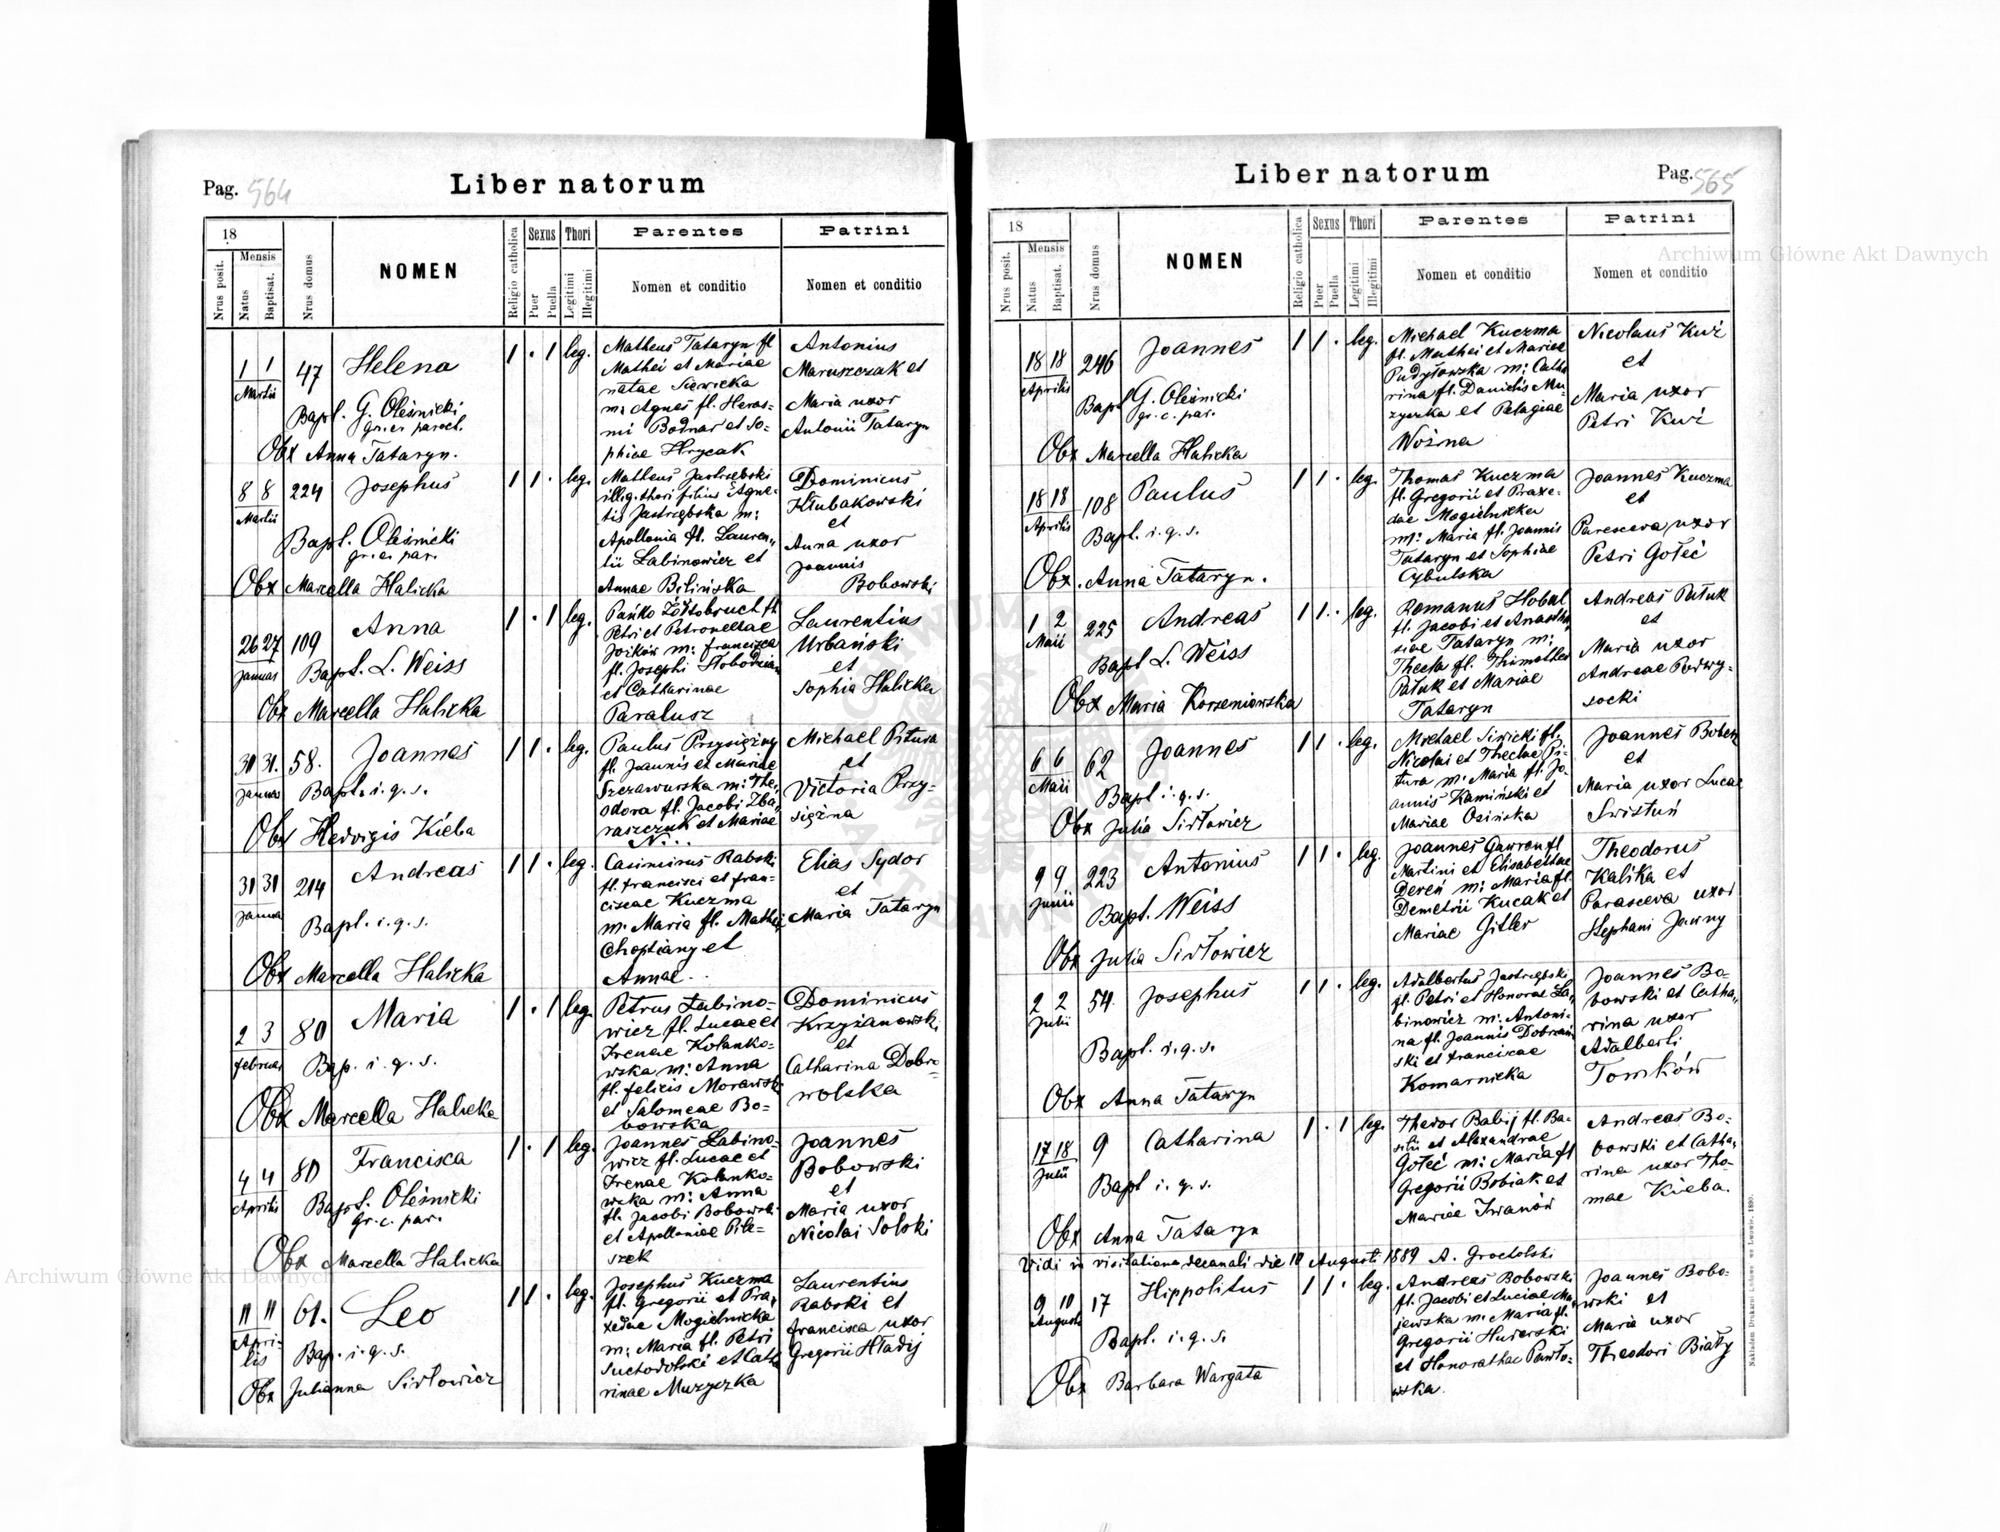 Pag. 564
Liber natorum
18
Nrus posit.
Mensis
Natus
Baptisat.
Nrus domus
NOMEN
Religio catholica
Sexus
Puer
Puella
Thori
Legitimi
Illegitimi
Parentes
Nomen et conditio
Patrini
Nomen et conditio
1 1 Martii
47
Helena
Bapt. G. Oleśnicki
gr. c. paroch.
Obx Anna Tataryn.
1 . 1 leg.
Matheus Tataryn fl
Mathei et Mariae
natae Siewicka
m: Agnes fl. Heras-
mi Bodnar et So-
phiae Hrycak
Antonius
Maruszczak et
Maria uxor
Antonii Tataryn
8 8 Martii
224
Josephus
Bapt. Oleśnicki
gr. c. par.
Obx Marcella Halicka
1 1 . leg.
Matheus Jastrzębski
illeg. thori filius Agne-
tis Jastrzębska m:
Apollonia fl. Lauren-
tii Łabinowicz et
Annae Bilińska
Dominicus
Kłubakowski
et
Anna uxor
Joannis
Bobowski
26 27 Januar
109
Anna
Bapt. L. Weiss
Obx Marcella Halicka
1 . 1 leg.
Petri et Petronellae
m: Francisca
fl. Josephi Słobodzian
et Catharinae
Paralusz
Laurentius
Urbański
et
Sophia Halicka
31 31. Janua
58.
Joannes
Bapt. i. q. s.
Obx Hedvigis Kieba
1 1 . leg.
Paulus Przysiężny
fl. Joannis et Mariae
Szczawurska m: The-
odora fl. Jacobi Zba-
raszczuk et Mariae
N...
Michael Pitura
et
Victoria Przy-
siężna
31 31 Janua
214
Andreas
Bapt. i. q. s.
Obx Marcella Halicka
1 1 . leg.
Casimirus Rabski
fl. Francisci et Fran-
ciscae Kuczma
m. Maria fl. Mathei
Chopciany et
Annae ..
Elias Sydor
et
Maria Tataryn
2 3 Februar
80
Maria
Bap. i. q. s.
Obx Marcella Halicka
1 . 1 leg.
Petrus Łabino-
wicz fl. Lucae et
Irenae Kołanko-
wska m: Anna
fl. Felicis Morawski
et Salomeae Bo-
bowska
Dominicus
Krzyżanowski
et
Catharina Dobro-
wolska
4 4 Aprilis
80
Francisca
Bapt. Oleśnicki
gr. c. par.
Obx Marcella Halicka
1 . 1 leg.
Joannes Łabino-
wicz fl. Lucae et
Irenae Kołanko-
wska m: Anna
fl. Jacobi Bobowski
et Apolloniae Pile-
szek
Joannes
Bobowski
et
Maria uxor
Nicolai Solski
11 11 Apri-
lis
61.
Leo
Bap. i. q. s.
Obx Julianna Sirłowicz
1 1 . leg.
Josephus Kuczma
fl. Gregorii et Pra-
xedae Mogielnicka
m: Maria fl. Petri
Suchodolski et Catha
rinae Muzyczka
Laurentius
Rabski et
Francisca uxor
Gregorii Hładij
Pag. 565
Liber natorum
18
Nrus posit.
Mensis
Natus
Baptisat.
Nrus domus
NOMEN
Religio catholica
Sexus
Puer
Puella
Thori
Legitimi
Illegitimi
Parentes
Nomen et conditio
Patrini
Nomen et conditio
18 18 Aprilis
246
Joannes
Bapt G. Oleśnicki
gr. c. par.
Obx Marcella Halicka
1 1 . leg.
Michael Kuczma
fl. Mathei et Mariae
Pudyłowska m: Catha
rina fl. Danielis Mu-
zyczka et Pelagiae
Woźna
Nicolaus Kuź
et
Maria uxor
Petri Kuź
18 18 Aprilis
108
Paulus
Bapt. i. q. s.
Obx. Anna Tataryn.
1 1 . leg.
Thomas Kuczma
fl. Gregorii et Praxe-
dae Mogielnicka
m: Maria fl. Joannis
Tataryn et Sophiae
Cybulska
Joannes Kuczma
et
Parasceva uxor
Petri Gołeć
1 2 Maii
225
Andreas
Bapt L. Weiss
Obx Maria Korzeniowska
1 1 . leg.
Romanus Hobal
fl. Jacobi et Anasta-
siae Tataryn m:
Thecla fl. Thimothei
Pałuk et Mariae
Tataryn
Andreas Pałuk
et
Maria uxor
Andreae Podwy-
socki
6 6 Maii
62
Joannes
Bapt i. q. s.
Obx Julia Sirłowicz
1 1 . leg.
Michael Siwicki fl.
Nicolai et Theclae Pi-
tura m. Maria fl. Jo-
annis Kamiński et
Mariae Osińska
Joannes Boberz
et
Maria uxor Lucae
Świstuń
9 9 Junii
223
Antonius
Bapt. Weiss
Obx Julia Sirłowicz
1 1 . leg.
Joannes Gawron fl
Martini et Elisabethae
Dereń m: Maria fl.
Demetrii Kucak et
Mariae Gitler
Theodorus
Kalika et
Parasceva uxor
Stephani Janny
2 2 Julii
54.
Josephus
Bapt. i. q. s.
Obx Anna Tataryn
1 1 . leg.
Adalbertus Jastrzębski
fl. Petri et Honorat Ła-
binowicz m: Antoni-
na fl. Joannis Dobrzań
ski et Franciscae
Komarnicka
Joannes Bo-
bowski et Catha-
rina uxor
Adalberti
Tomków
17 18 Julii
9
Catharina
Bapt i. q. s.
Obx Anna Tataryn
1 . 1 leg.
Theodor Babij fl. Ba-
silii et Alexandrae
Gołeć m: Maria fl
Gregorii Bobiak et
Mariae Iwanów
Andreas Bo-
bowski et Catha-
rina uxor Tho-
mae Kieba.
Vidi in visitatione decanali die 10 Augusti 1889 A. Grocholski
9 10 Augusti
17
Hippolitus
Bapt. i. q. s.
Obx Barbara Wargata
1 1 . leg.
Andreas Bobowski
fl. Jacobi et Luciae Ma-
jewska m. Maria fl.
Gregorii Huzerski
et Honorathae Pawło-
wska.
Joannes Bobo-
wski et
Maria uxor
Theodori Biały
Nakładem Drukarni Ludowej we Lwowie. 1890.
Archiwum Główne Akt Dawnych
Archiwum Główne Akt Dawnych